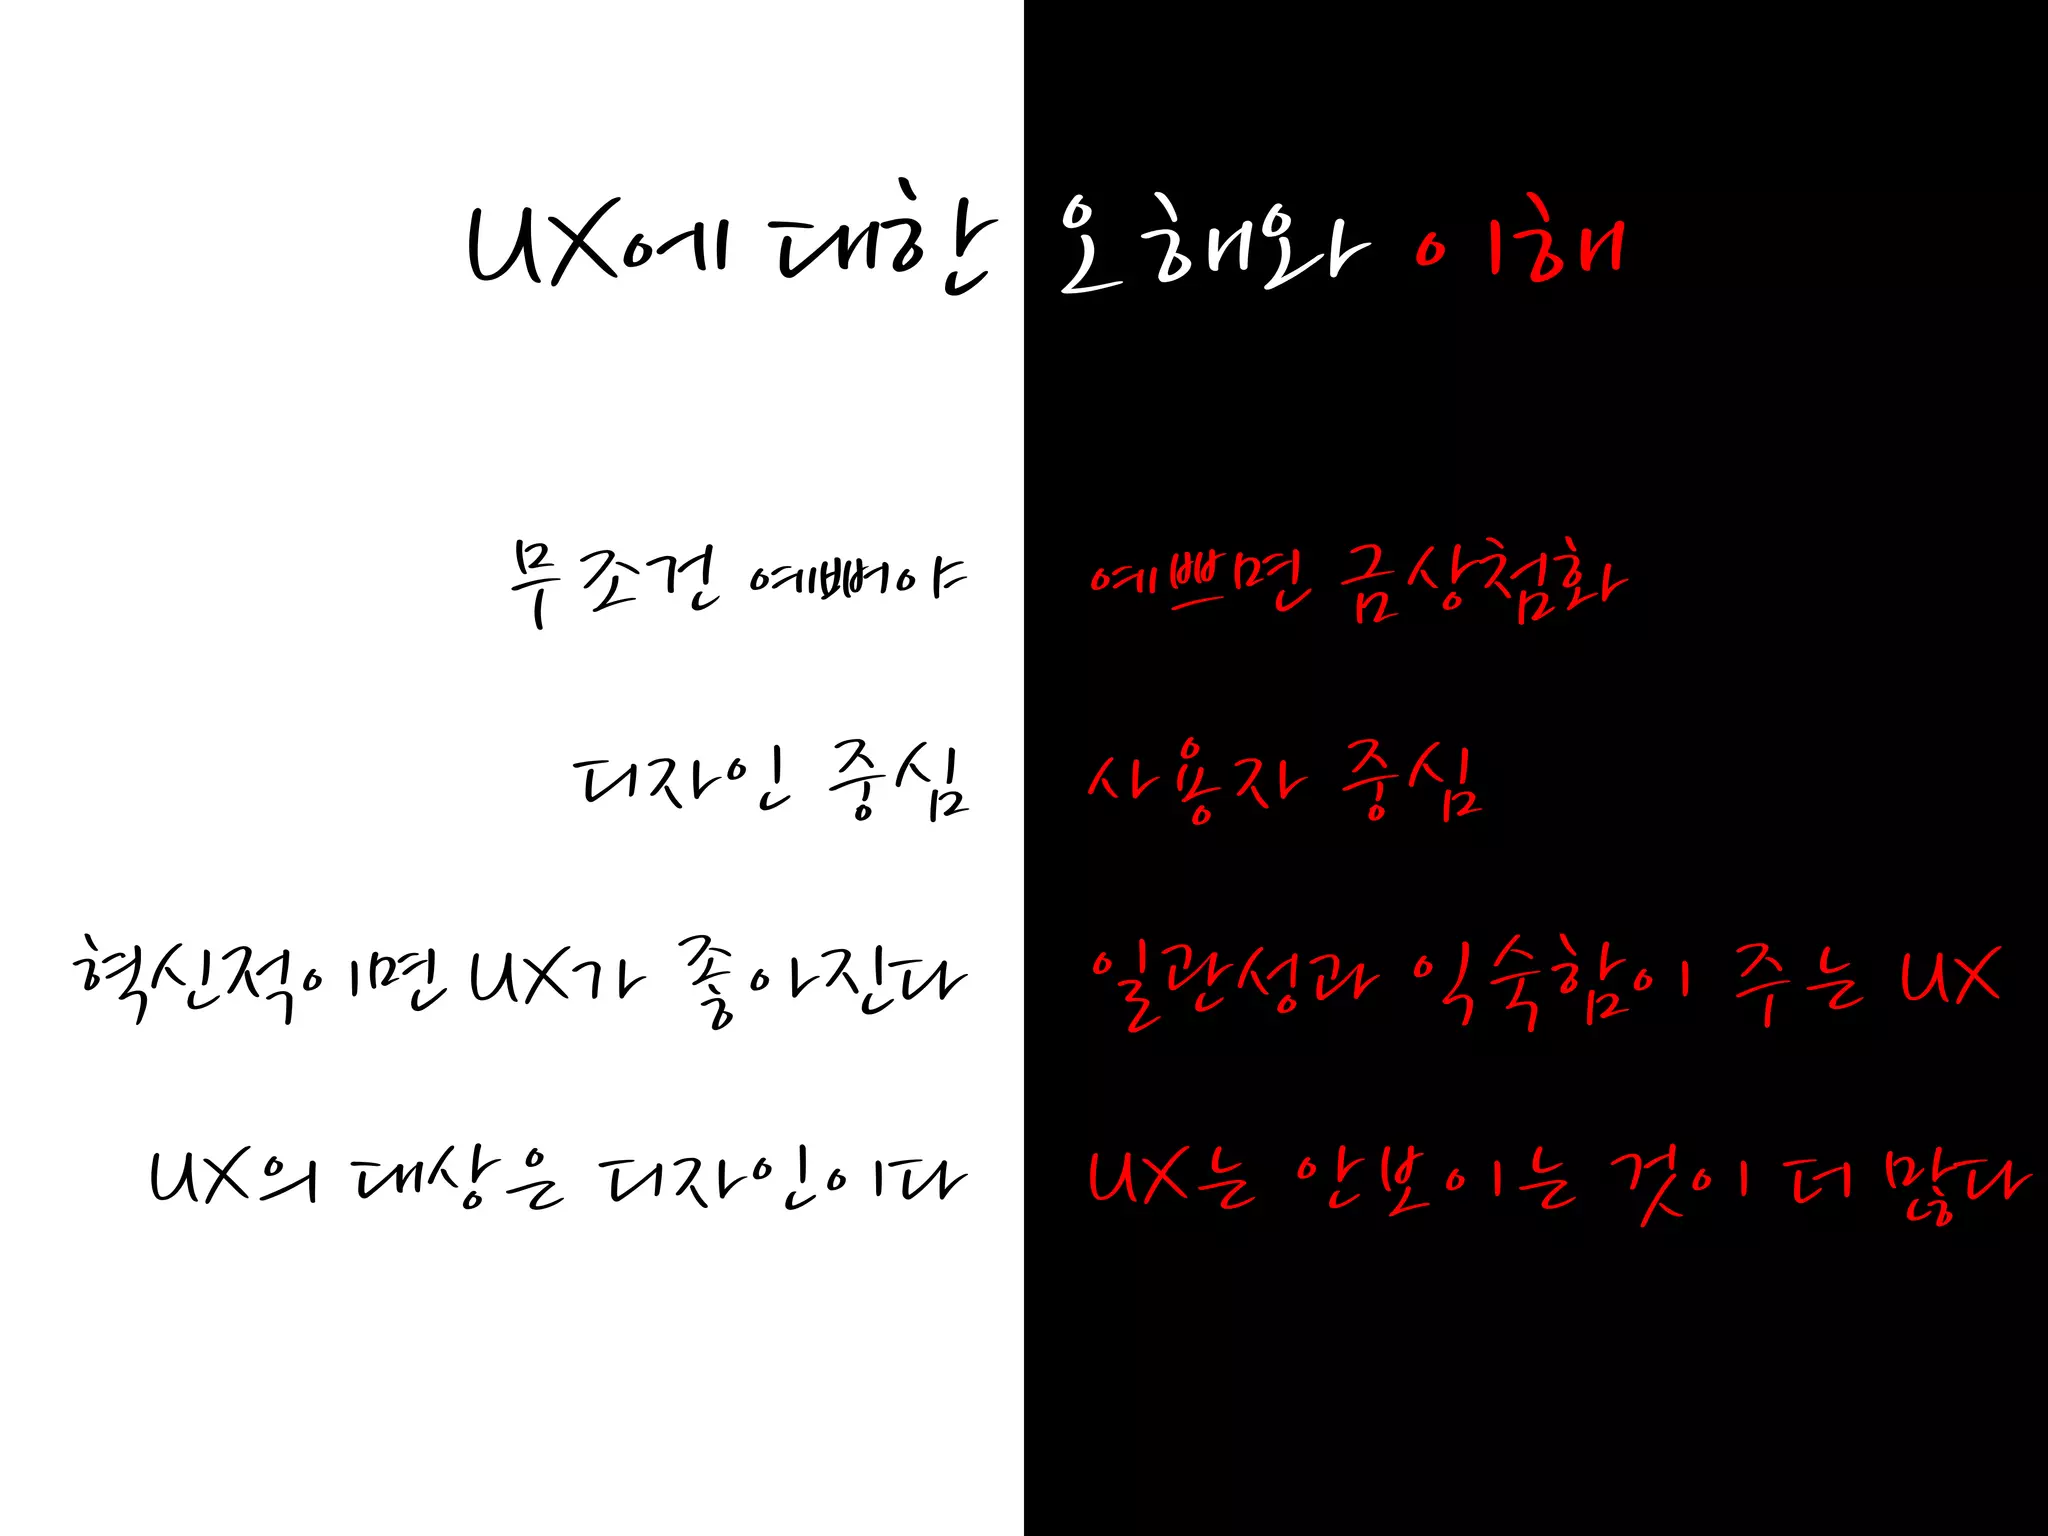 UX에 대한 오해와 이해
무조건 예뻐야 예쁘면 금상첨화
디자인 중심 사용자 중심
혁신적이면 UX가 좋아진다 일관성과 익숙함이 주는 UX
UX의 대상은 디자인이다 UX는 안보이는 것이 더 많다